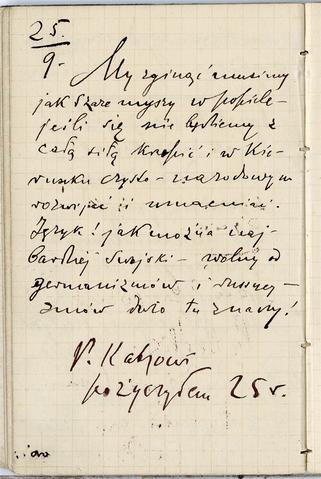 25.
9.
My zginąć musimy
jak szare myszy w popiele –
jeśli się nie będziemy z
całą siłą krzepić i w kie-
runku czysto – narodowym
rozwijać i umacniać.
Język! jak można naj-
bardziej swojski – wolny od
germanizmów i russycy-
zmów dużo tu znaczy!
P.
pożyczyłem 25 r.